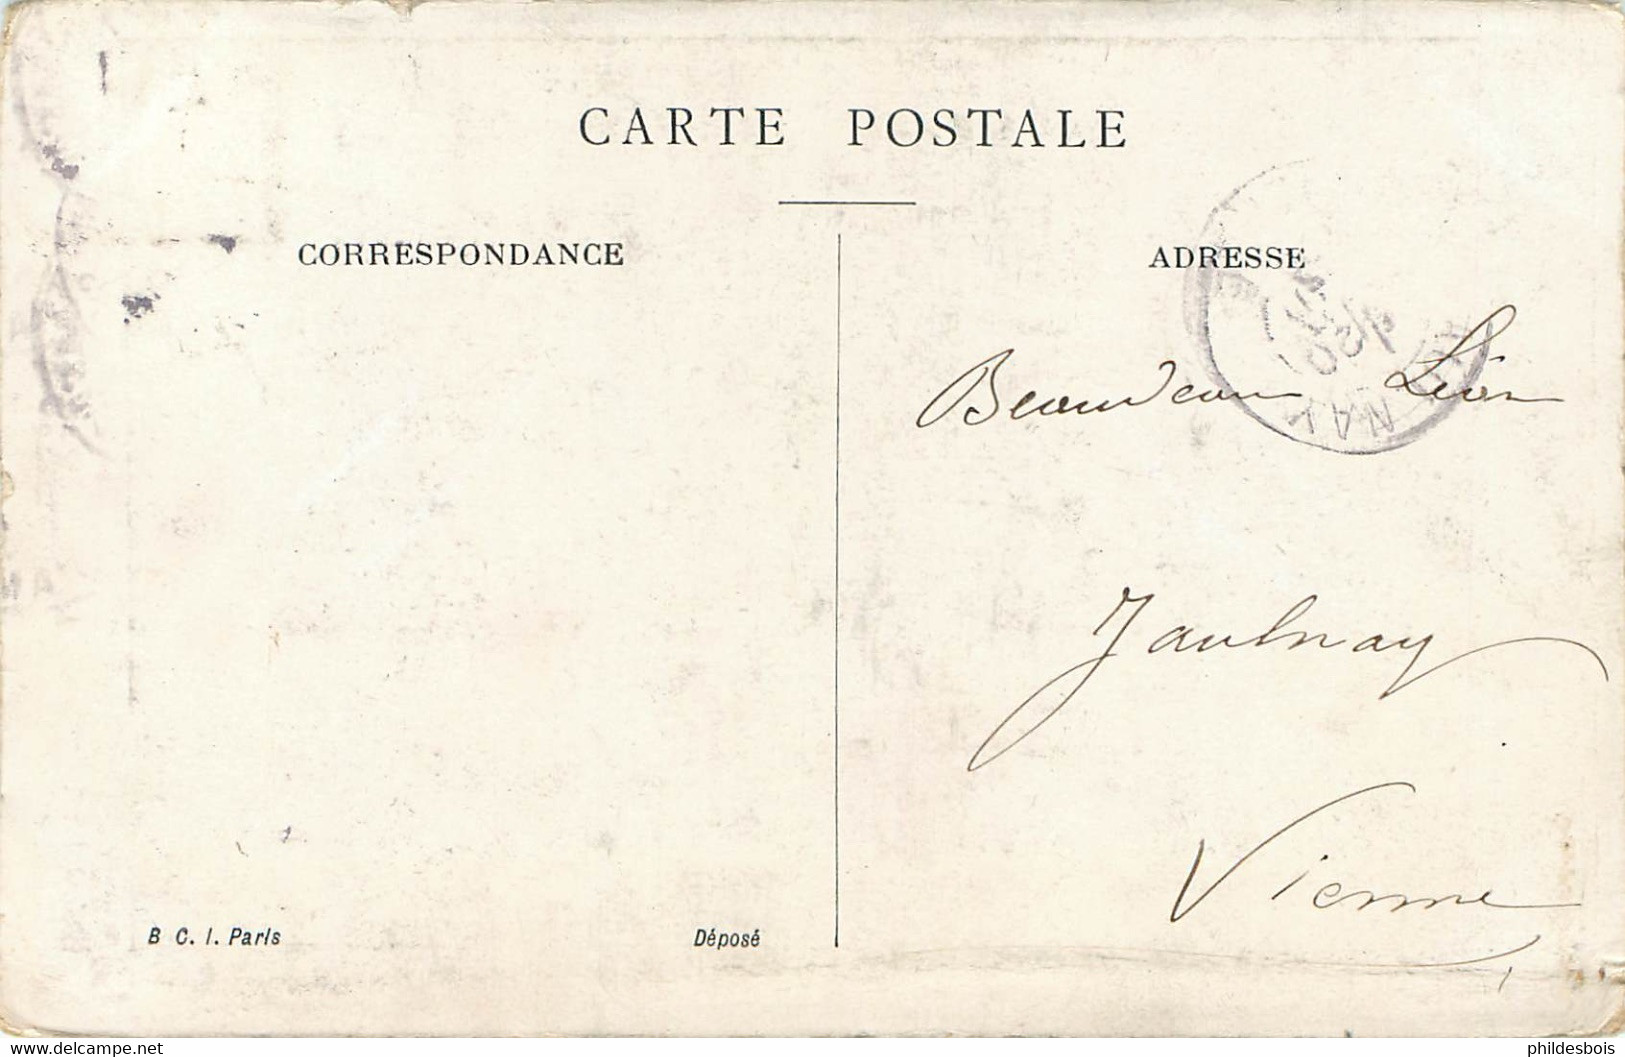 CARTE POSTALE
CORRESPONDANCE
ADRESSE
Beaudeau Léon
Jaulnay
Vienne
B C. I. Paris
Déposé
phildesbois